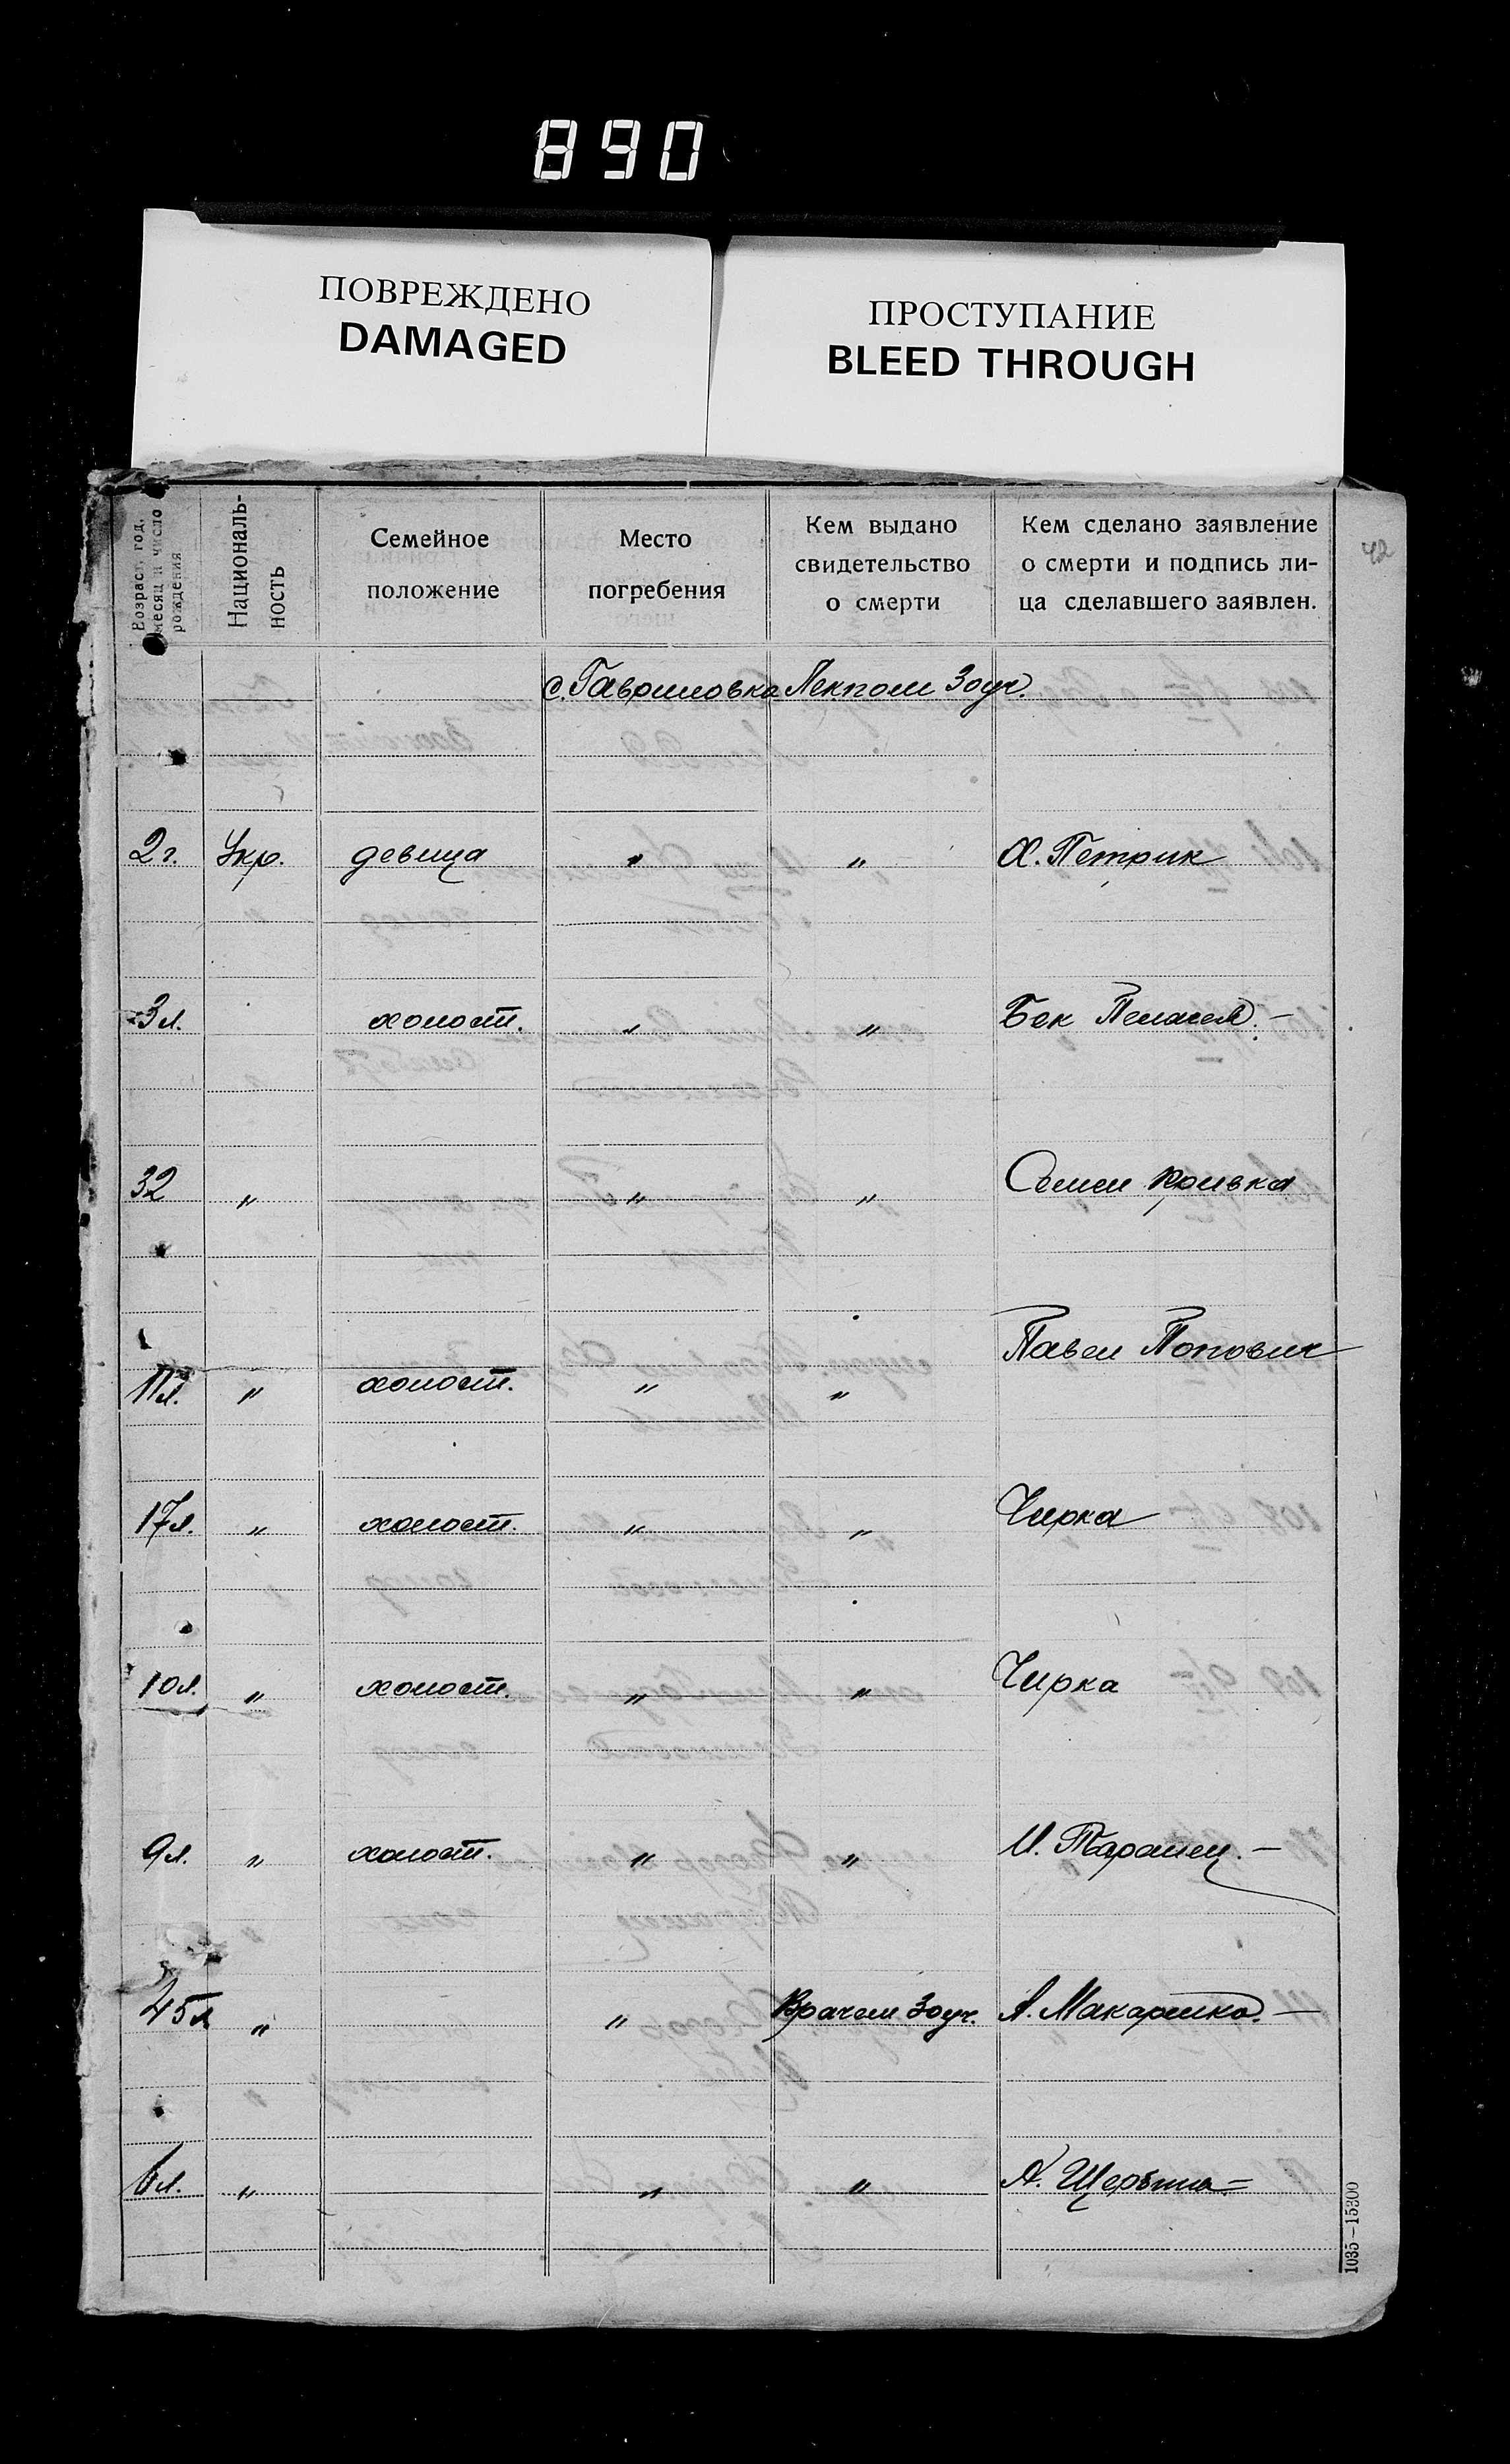 890
ПОВРЕЖДЕНО
DAMAGED
ПРОСТУПАНИЕ
BLEED THROUGH
42
Возраст, год, месяц и число рождения
Националь-
ность
Семейное
положение
Место
погребения
Кем выдано
свидетельство
о смерти
Кем сделано заявление
о смерти и подпись ли-
ца сделавшего заявлен.
с. Гавриловка Лекпом 3 оуч.
2 г. Укр. девица " " Х. Петрик
3 л. холост. " " Бек Пелагея. –
32 " " " Семен Кривка
Павел Попович
11 л. " холост. " "
17 л. " холост. " " Чирка
10 л. " холост. " " Чирка
9 л. " холост. " " И. Таранец. –
45 л " " Врачем 3 оуч. А. Макаренко. –
6 л. " " " А. Щербина =
1035–15300